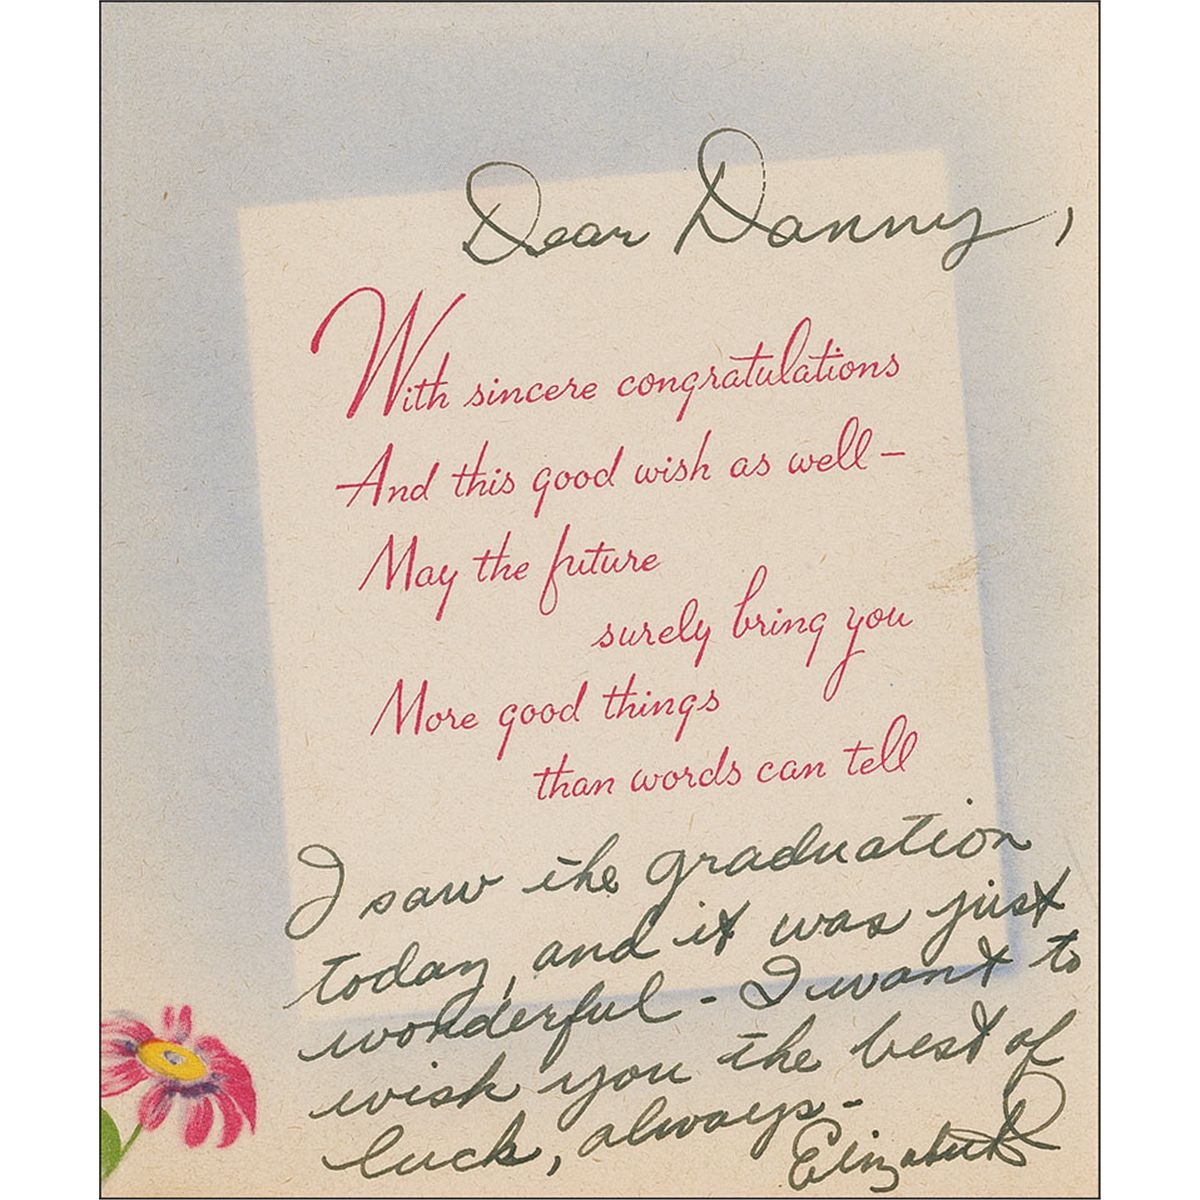 Dear Danny,
With sincere congratulations
And this good wish as well—
May the future
surely bring you
More good things
than words can tell
I saw the graduation
today, and it was just
wonderful - I want to
wish you the best of
luck, always -
Elizabeth